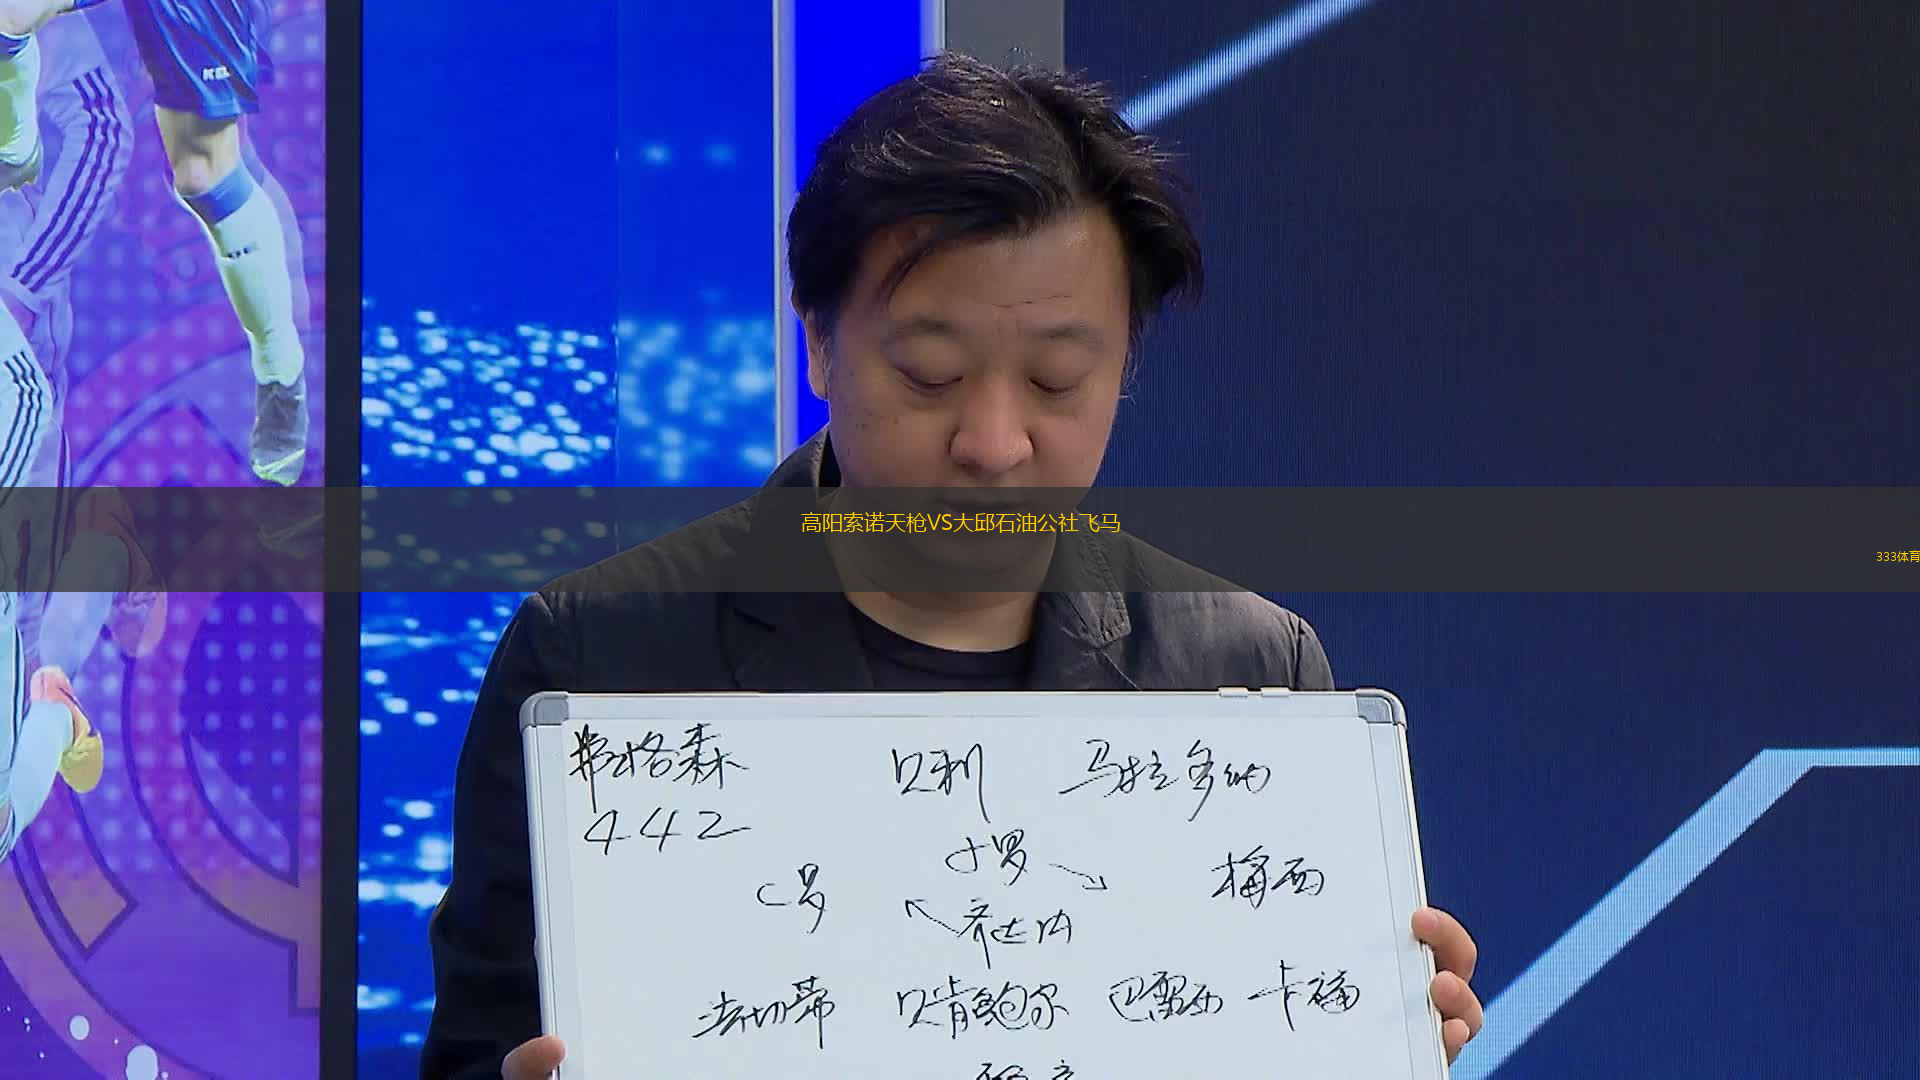 KEL
高阳索诺天枪VS大邱石油公社飞马
333体育
弗格森 贝利 马拉多纳
442
小罗
C罗 梅西
齐达内
法切蒂 贝肯鲍尔 巴雷西 卡福